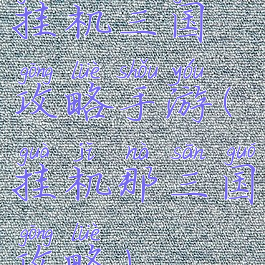 挂机三国
gōng lüè shǒu yóu
攻略手游(
guà jī nà sān guó
挂机那三国
gōng lüè
攻略)